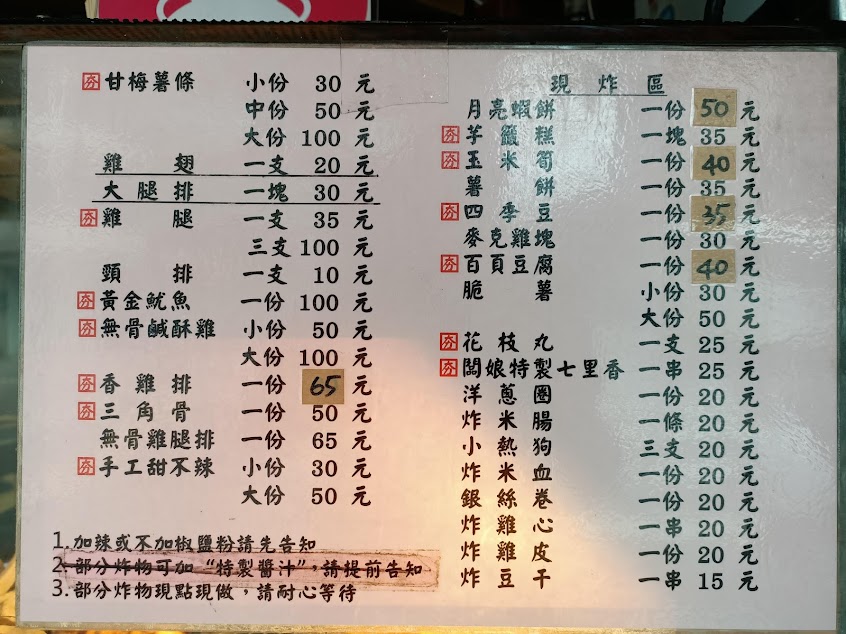 夯甘梅薯條 小份 30 元
中份 50 元
大份 100 元
雞翅 一支 20 元
大腿排 一塊 30 元
夯雞腿 一支 35 元
三支 100 元
頸排 一支 10 元
夯黃金魷魚 一份 100 元
夯無骨鹹酥雞 小份 50 元
大份 100 元
夯香雞排 一份 65 元
夯三角骨 一份 50 元
無骨雞腿排 一份 65 元
夯手工甜不辣 小份 30 元
大份 50 元
1.加辣或不加椒鹽粉請先告知
2.部分炸物可加“特製醬汁”,請提前告知
3.部分炸物現點現做,請耐心等待
現炸區
月亮蝦餅 一份 50 元
夯芋籤糕 一塊 35 元
夯玉米筍 一份 40 元
薯餅 一份 35 元
夯四季豆 一份 35 元
麥克雞塊 一份 30 元
夯百頁豆腐 一份 40 元
脆薯 小份 30 元
大份 50 元
夯花枝丸 一支 25 元
夯闆娘特製七里香 一串 25 元
洋蔥圈 一份 20 元
炸米腸 一條 20 元
小熱狗 三支 20 元
炸米血 一份 20 元
銀絲卷 一份 20 元
炸雞心 一串 20 元
炸雞皮 一份 20 元
炸豆干 一串 15 元